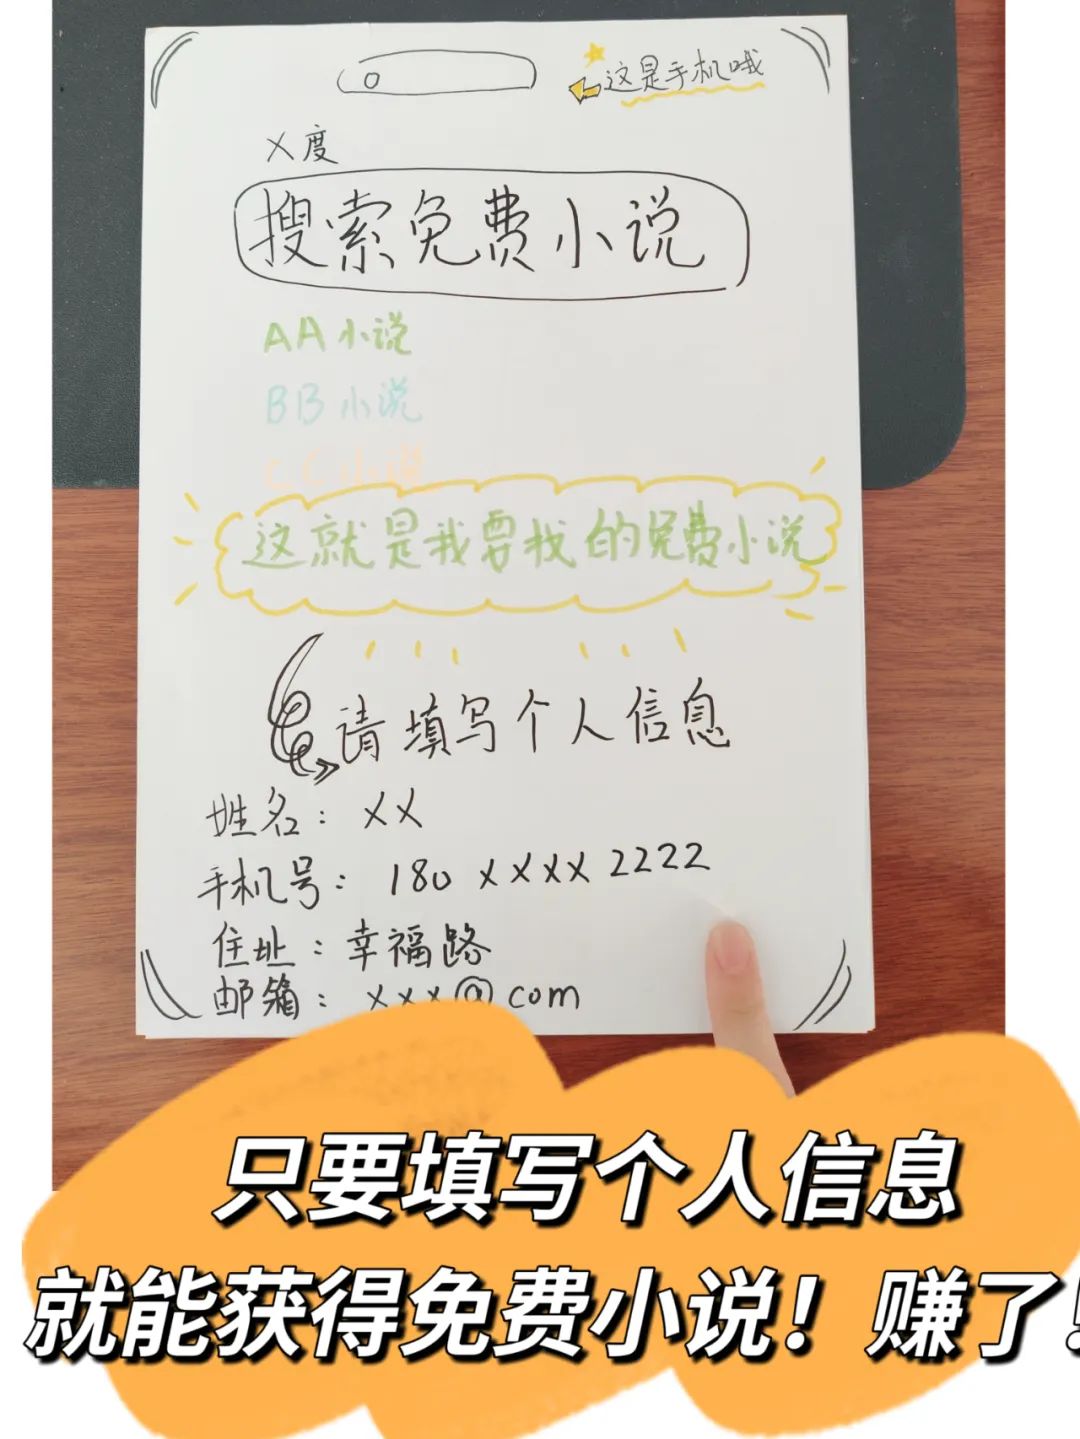 这是手机哦
X度
搜索免费小说
AA小说
BB小说
CC小说
这就是我要找的免费小说
请填写个人信息
姓名：XX
手机号：180 XXXX 2222
住址：幸福路
邮箱：xxx@com
只要填写个人信息
就能获得免费小说！赚了！